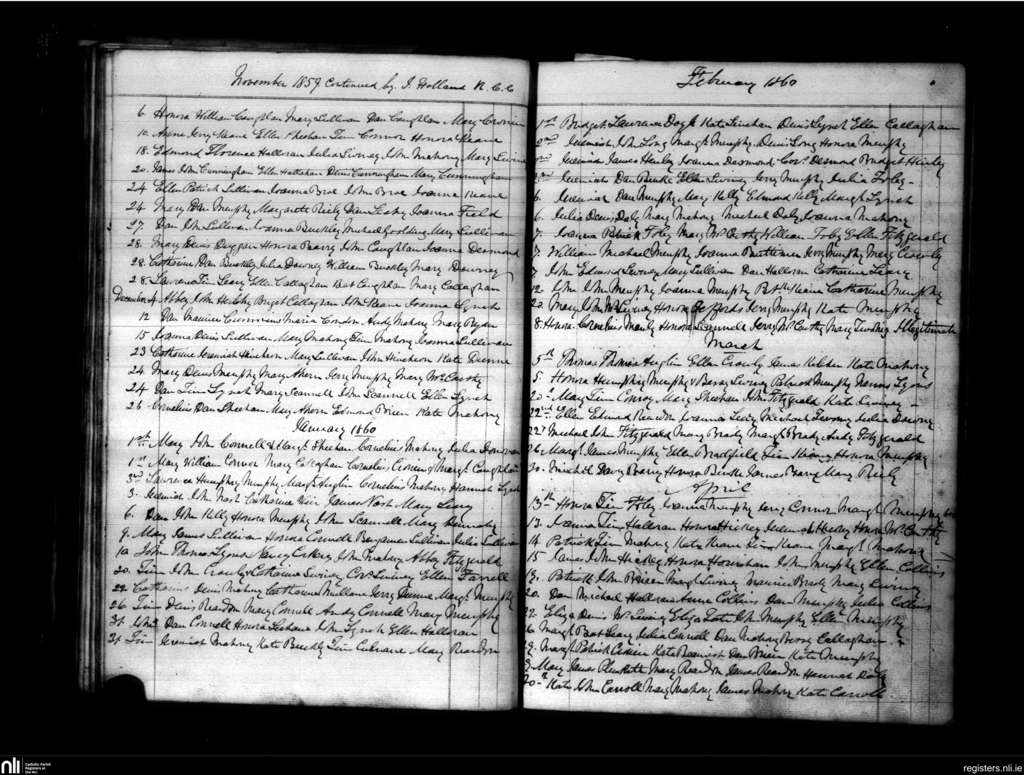 November 1859 Continued by J. Holland R.C.C
6 Honora William Coughlan Mary Sullivan Dan Coughlan Mary Cronin
10 Jerry Keane Ellen Sheehan Tim Connor Honora Keane
18. Edmond Florence Halloran Julia Swiney John Mahony Mary Swiney
20. John Cunningham Ellen Denis Cunningham Mary Cunningham
24 Ellen Patrick Sullivan Joanna Broe John Broe Joanna Keane
24 Mary Dan Murphy Margarette Riely Dan Leahy Joanna Field
27. Dan John Sullivan Joanna Buckley Michael Goulding Mary Sullivan
28. Mary Denis Duggan Honora John Coughlan Joanna Desmond
28. Catharine Dan Buckley Julia Downey William Buckley Mary Downey
28. Lawrence Tim Leary Ellen Callaghan Bat Coughlan Mary Callaghan
December 4 Abby John Bridget Callaghan John Keane Joanna Lynch
12 Dan Maurice Maria Condon Andy Mahony Mary Ryan
15 Joanna Denis Sullivan Mary Mahony Tim Mahony Joanna Sullivan
23 Catherine Jeremiah Hinchion Mary Sullivan John Hinchion Kate Dunne
24 Mary Denis Murphy Mary Ahern Jerry Murphy Mary McCarthy
24 Dan Tim Lynch Mary Scannell John Scannell Ellen Lynch
26 Cornelius Dan Sheehan Mary Ahern Edmond Brien Kate Mahony
January 1860
1st Mary John Connell & Margt Sheehan Cornelius Mahony Julia Donovan
1st Mary William Connor Mary Callaghan Cornelius Margt Coughlan
3rd Lawrence Humphrey Murphy Margt Anglin Cornelius Mahony Hannah Lynch
3. Jeremiah John Nash Catharine James Nash Mary Leary
6. Dan John Kelly Honora Murphy John Scannell Mary Dennehy
9. Mary James Sullivan Honora Connell Benjamin Sullivan Julia Sullivan
10 John Thomas Lynch Nancy John Mahony Abby Fitzgerald
20. Tim John Crowly Catharine Swiney Cors Swiney Ellen Farrell
22. Catharine Denis Mahony Catharine Mullane Jerry Dunne Margt Murphy
26 Tim Denis Reardon Mary Connell Andy Connell Mary Murphy
31 John Dan Connell Honora John Lynch Ellen Halloran
31 Tim Jeremiah Mahony Kate Buckly Tim Mary Reardon
February 1860
1st Bridget Lawrence Doyle Kate Linehan Denis Lynch Ellen Callaghan
2nd Jeremiah John Long Margt Murphy Denis Long Honora Murphy
2nd Jeremiah James Henly Joanna Desmond Cors Desmond Bridget Henly
Jeremiah Dan Burke Ellen Swiney Jerry Murphy Julia Foley
6. Jeremiah Dan Murphy Mary Kelly Edmond Kelly Margt Lynch
6. Julia Denis Daly Mary Mahony Michael Daly Joanna Mahony
7. Joanna Patrick Foley Mary McCarthy William Foley Ellen Fitzgerald
7. William Michael Murphy Joanna Buttimer Jerry Murphy Mary Crowly
7 John Edmond Swiney Mary Sullivan Dan Halloran Catharine Leary
12 John John Murphy Joanna Murphy Patk Catharine Murphy
20. Mary John McSwiney Honora Jerry Murphy Kate Murphy
8. Honora Cornelius Honora Scannell Jerry McCarthy Mary Illegitimate
March
5th Thomas Thomas Anglin Ellen Crowly James Kate Mahony
5. Honora Humphrey Murphy Swiney Patrick Murphy Lyons
20. Mary Tim Conroy Mary Sheehan John Fitzgerald Kate
22nd Ellen Edmond Reardon Joanna Leary Michael Julia Downy
22nd Michael John Fitzgerald Mary Brady Margt Brady Andy Fitzgerald
26. Margt James Murphy Ellen Bradfield Tim Honora Murphy
30. Michael Davy Barry Honora Burke James Barry Mary Riely
April
13th Honora Tim Foley Joanna Murphy Jerry Connor Margt Murphy
13. Joanna Tim Halloran Honora Hickey Jeremiah Hickey Honora McCarthy
14 Patrick Tim Mahony Kate Keane Keane Margt Mahony
15 John Hickey Honora Hourihan John Murphy Ellen Collins
13. Patrick John Brien Margt Swiney Maurice Mary Swiney
20. Dan Michael Halloran Anne Collins Dan Murphy Julia Collins
22. Eliza Denis McSwiney Eliza John Murphy Ellen Murphy
6 Margt Bat Leary Julia Connell Dan Mahony Callaghan
9. Margt Patrick Kate Dan Brien Kate Murphy
9. Mary James Plunkett Mary Reardon James Reardon Hannah Daly
20th Kate John Carroll Mary Mahony James Mahony Kate Carroll
nli
Catholic Parish Registers at the NLI
registers.nli.ie